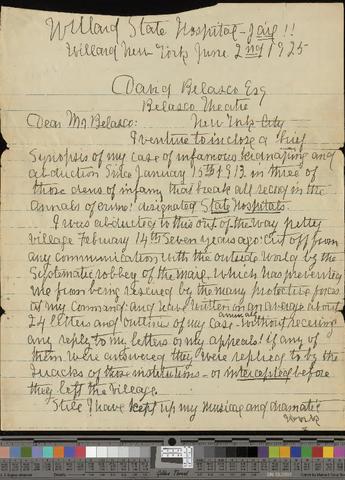 Willard State Hospital - Jail!!
Willard New York June 2nd 1925
David Belasco Esq
Belasco Theatre
Dear Mr Belasco: New York City
I venture to inclose a brief
Synopsis of my case of infamous kidnaping and
abduction Since January 15th 1913 in three of
those dens of infamy that break all record in the
annals of crime! designated State Hospitals.
I was abducted to this out of the way petty
village February 14th Seven years ago: cut off from
any communication with the outside world by the
Systematic robbery of the mails. Which has prevented
me from being rescued by the many protective forces
at my command and have written on an average about
24 letters and outlines of my case annually - without receiving
any reply to my letters or my appeals! if any of
them were answered they were replied to by the
Quacks of those institutions - or intercepted before
they left the Village.
Still I have kept up my musical and dramatic
work